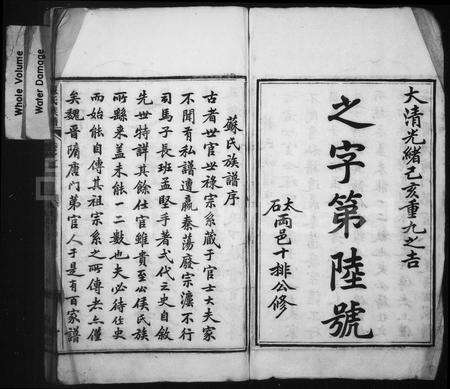 Whole Volume
Water Damage
大清光緒己亥重九之吉
之字第陸號
太
石
兩邑十排公修
蘇氏族譜序
古者世官世祿宗系藏于官士大夫家
不聞有私譜遭嬴秦蕩廢宗瀍不行
司馬子長班孟堅手著弍代之史自敘
先世特詳其餘仕官雖貴至公侯氏族
所繇來蓋未能一二數也夫必待仕史
而始能自傳其祖宗系之所傳者亦僅
矣魏晉隋唐門第官人于是有百家譜